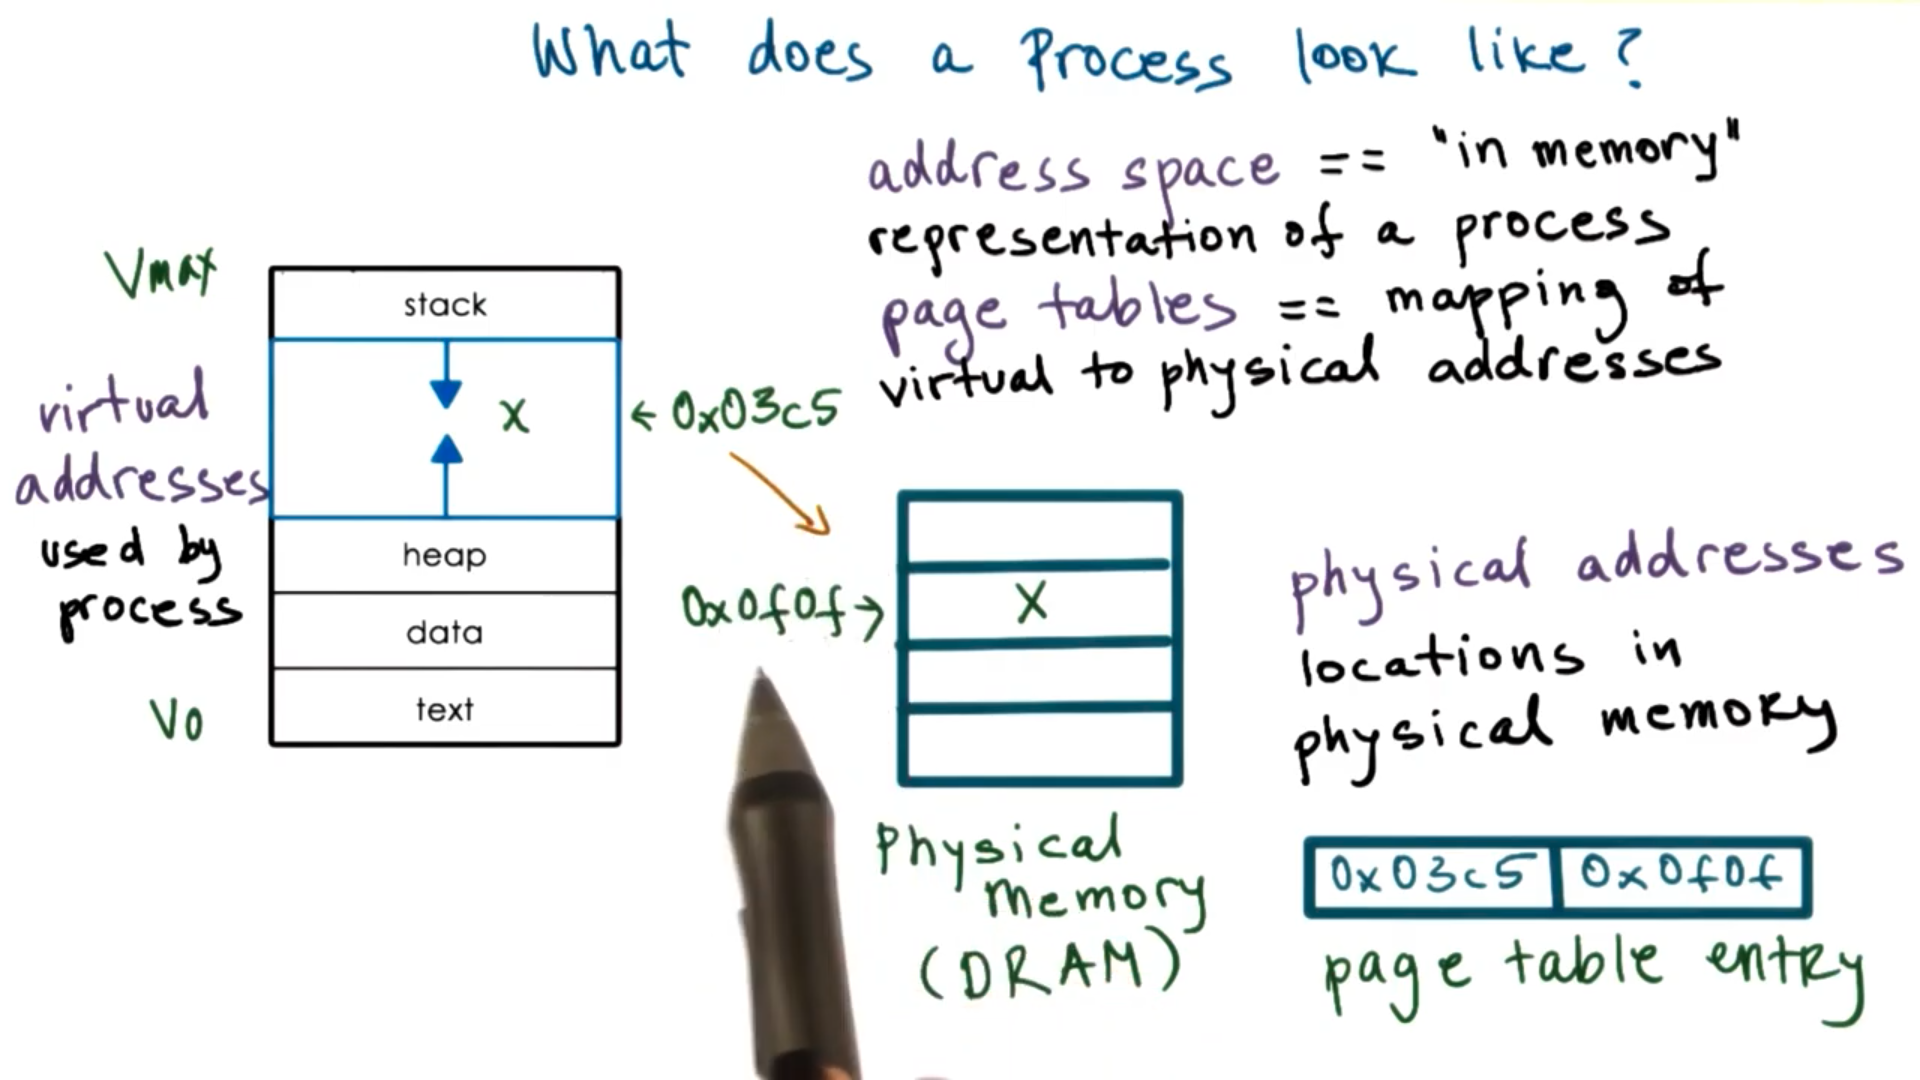 What does a Process look like?
address space == "in memory"
representation of a process
page tables == mapping of
virtual to physical addresses
Vmax
stack
virtual
addresses
used by
process
X
← 0x03c5
heap
data
text
V0
0x0f0f →
X
Physical
memory
(DRAM)
physical addresses
locations in
physical memory
0x03c5 0x0f0f
page table entry